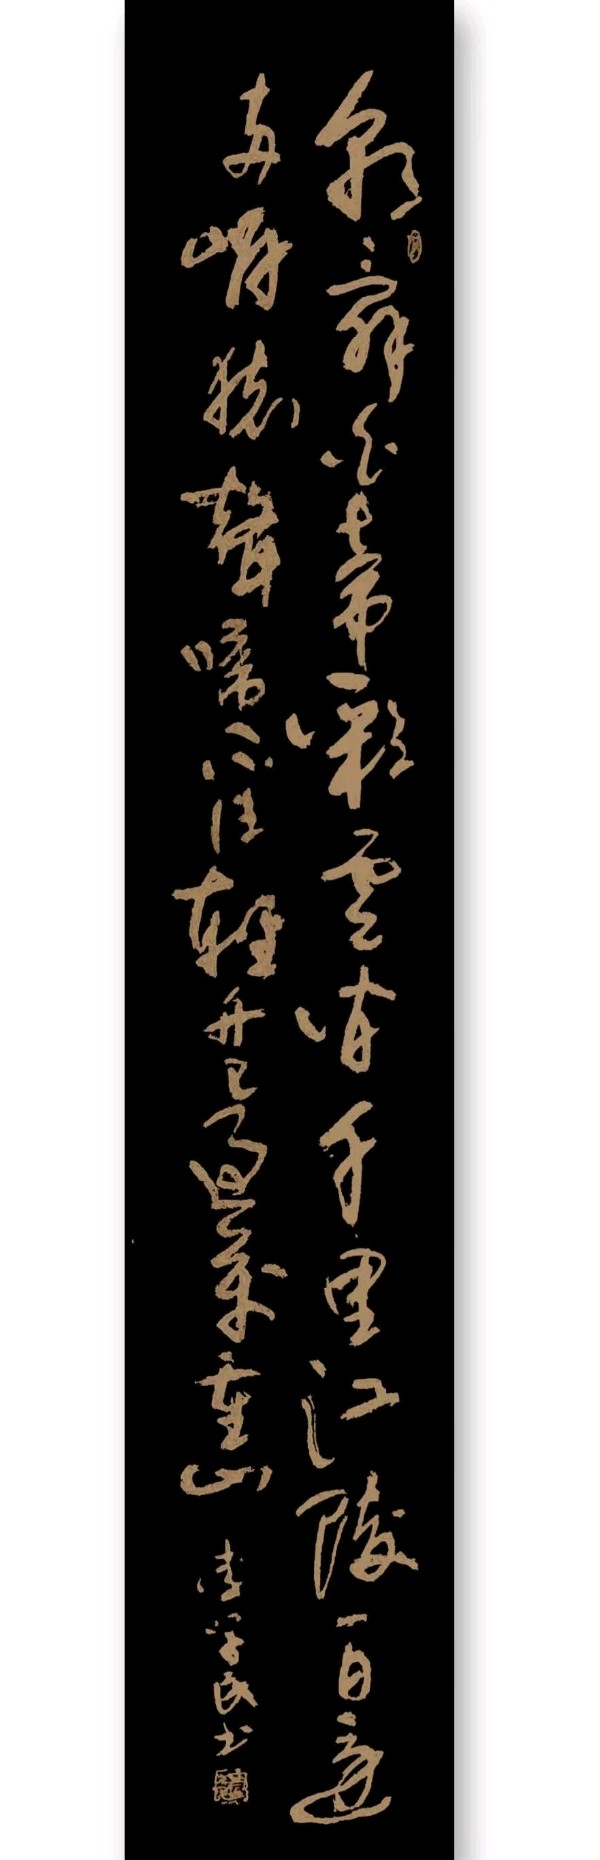 朝辭白帝彩雲間千里江陵一日還
兩岸猿聲啼不住輕舟已過萬重山
李學民書